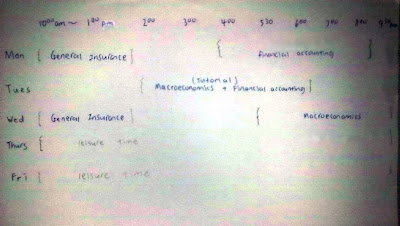 10⁰⁰ am ~ 1⁰⁰ pm 2⁰⁰ 3⁰⁰ 4⁰⁰ 5³⁰ 6⁰⁰ 7⁰⁰ 8⁰⁰
Mon { General Insurance } { Financial accounting }
(Tutorial)
Tues { Macroeconomics + Financial accounting }
Wed { General Insurance } { Macroeconomics
Thurs { leisure time
Fri { leisure time